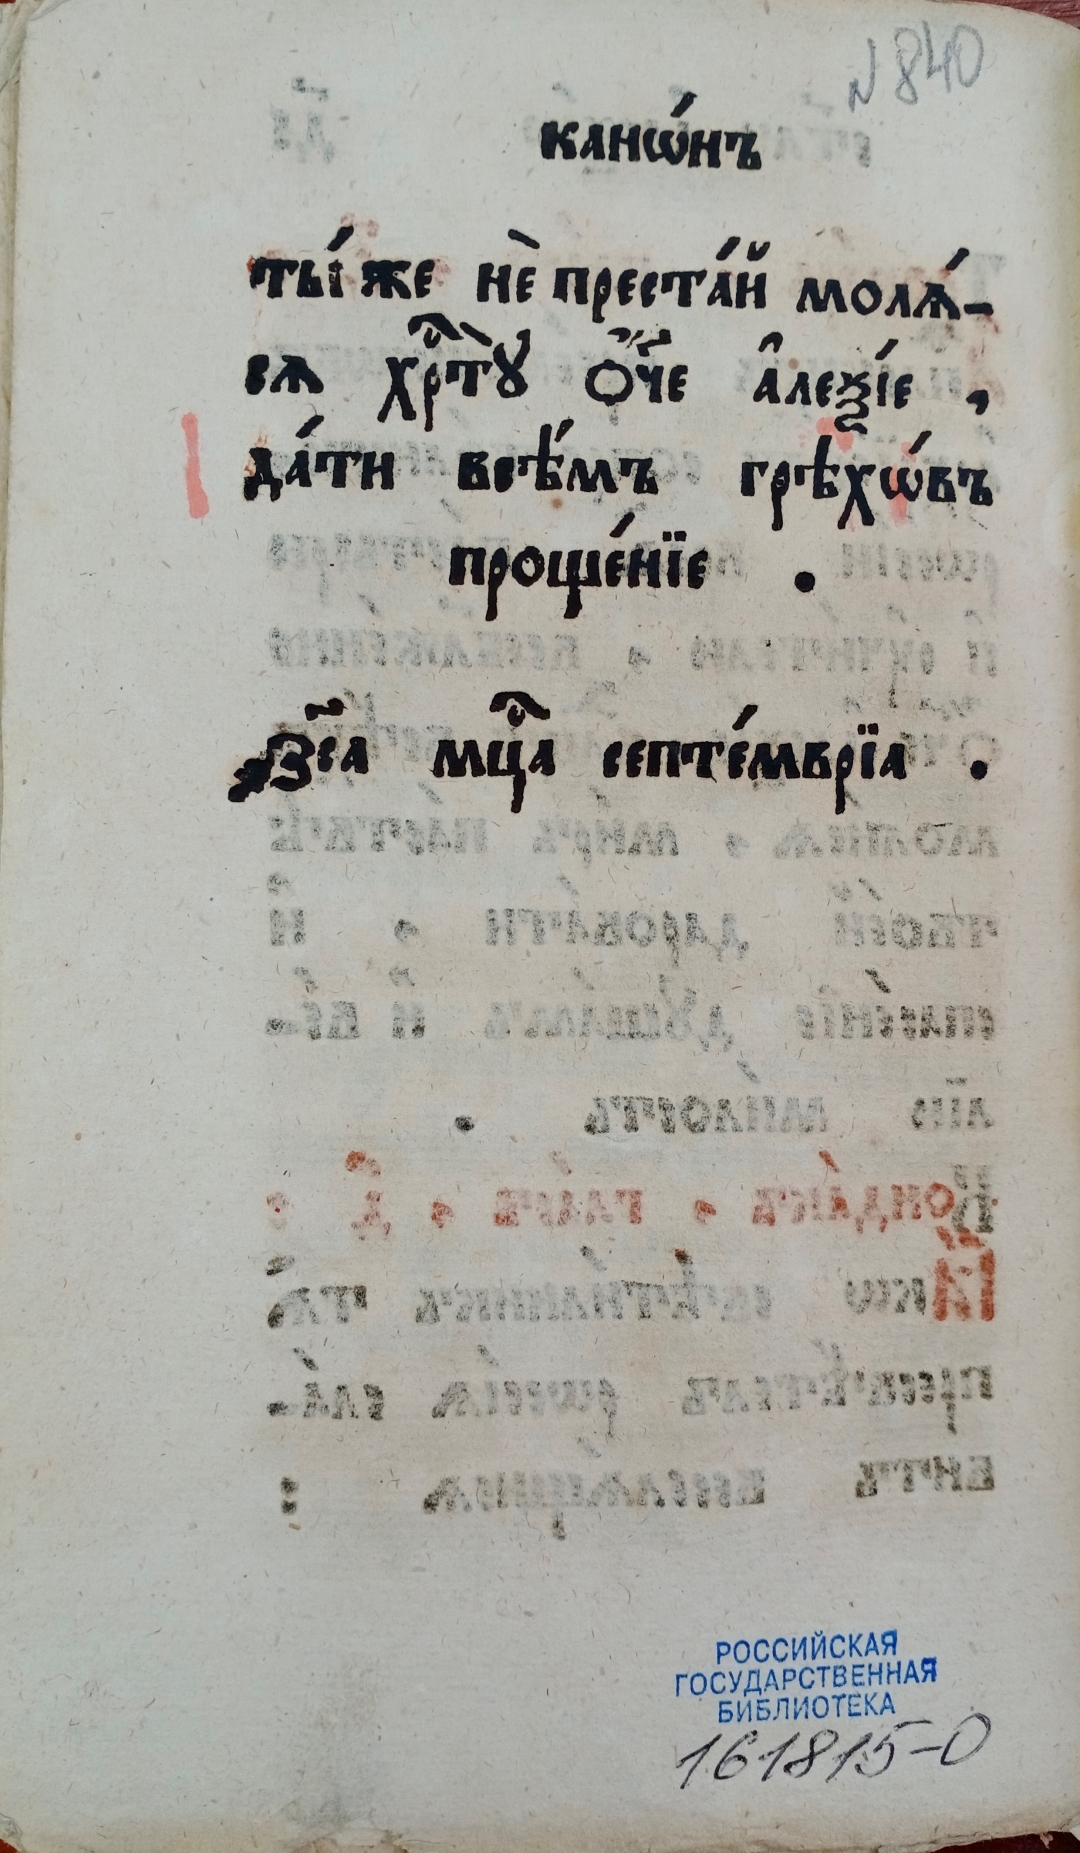 N 840
канѡ́нъ
ты́ же нѐ преста́й молѧ́-
сѧ хрⷭ҇тꙋ̀ ѻ҆́ч҃е а҆леѯі́е ,
да́ти всѣ́мъ грѣхѡ́въ
проще́нїе .
мцⷭ҇а септе́мврїа .
РОССИЙСКАЯ
ГОСУДАРСТВЕННАЯ
БИБЛИОТЕКА
161815-0